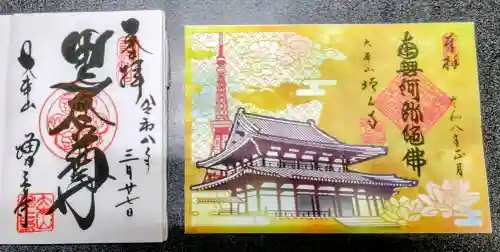 奉拝
令和八年
三月廿七日
黒本尊
大本山 増上寺
奉拝
南無阿弥陀佛
令和八年正月
大本山 増上寺